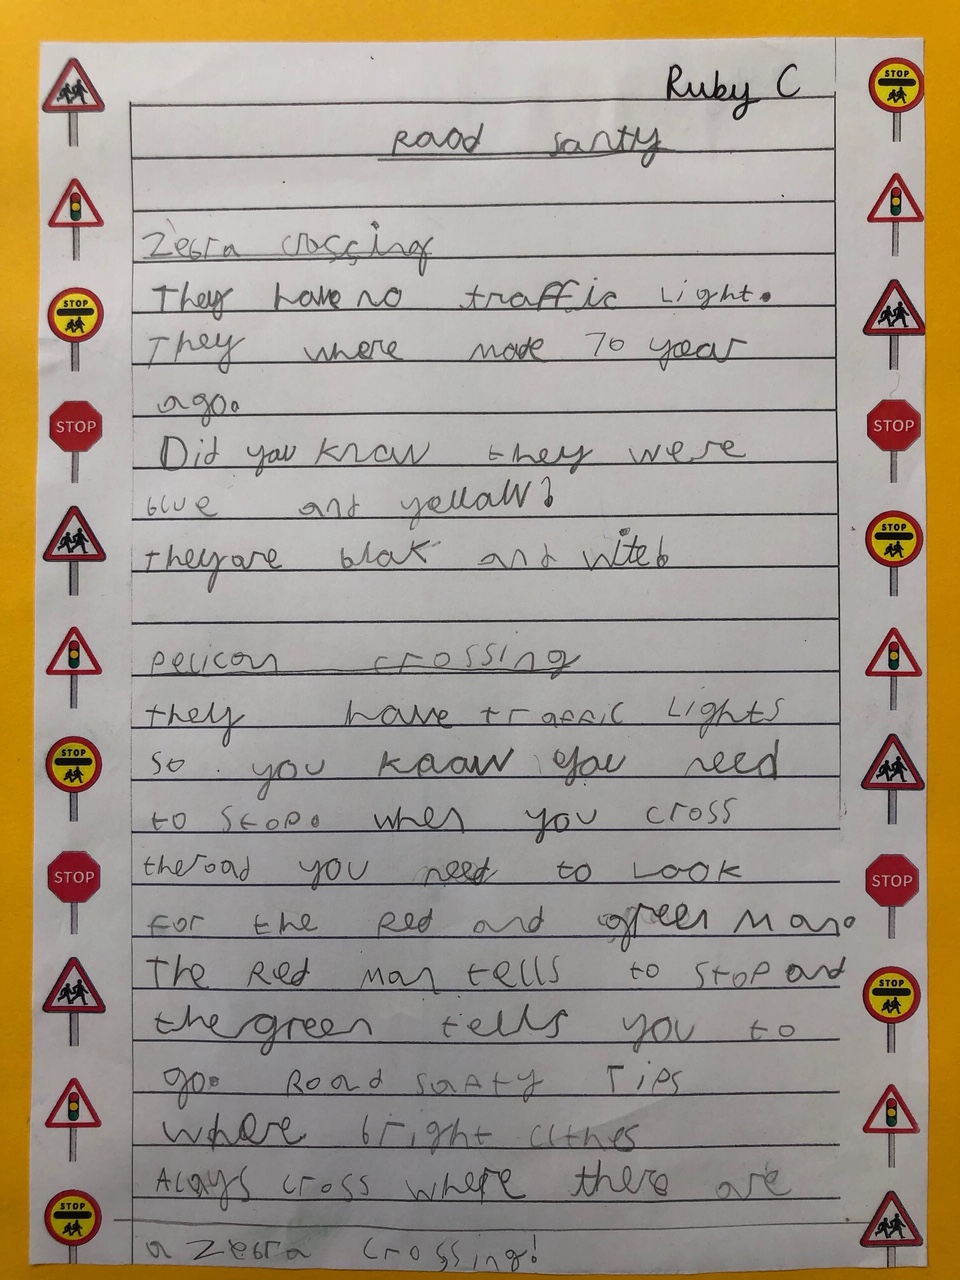 Ruby C
Road sarty
Zebra crossing
They have no traffic Light.
They where made 70 year
ago.
Did you know they were
blue and yellow?
they are blak and wite
pelican crossing
they have traffic Lights
so you kaow you need
to stop. when you cross
the road you need to Look
for the Red and green Man.
The Red Man tells to stop and
the green tells you to
go. Road safty Tips
where bright clthes
Alays cross where there are
a zebra crossing!
STOP
STOP
STOP
STOP
STOP
STOP
STOP
STOP
STOP
STOP